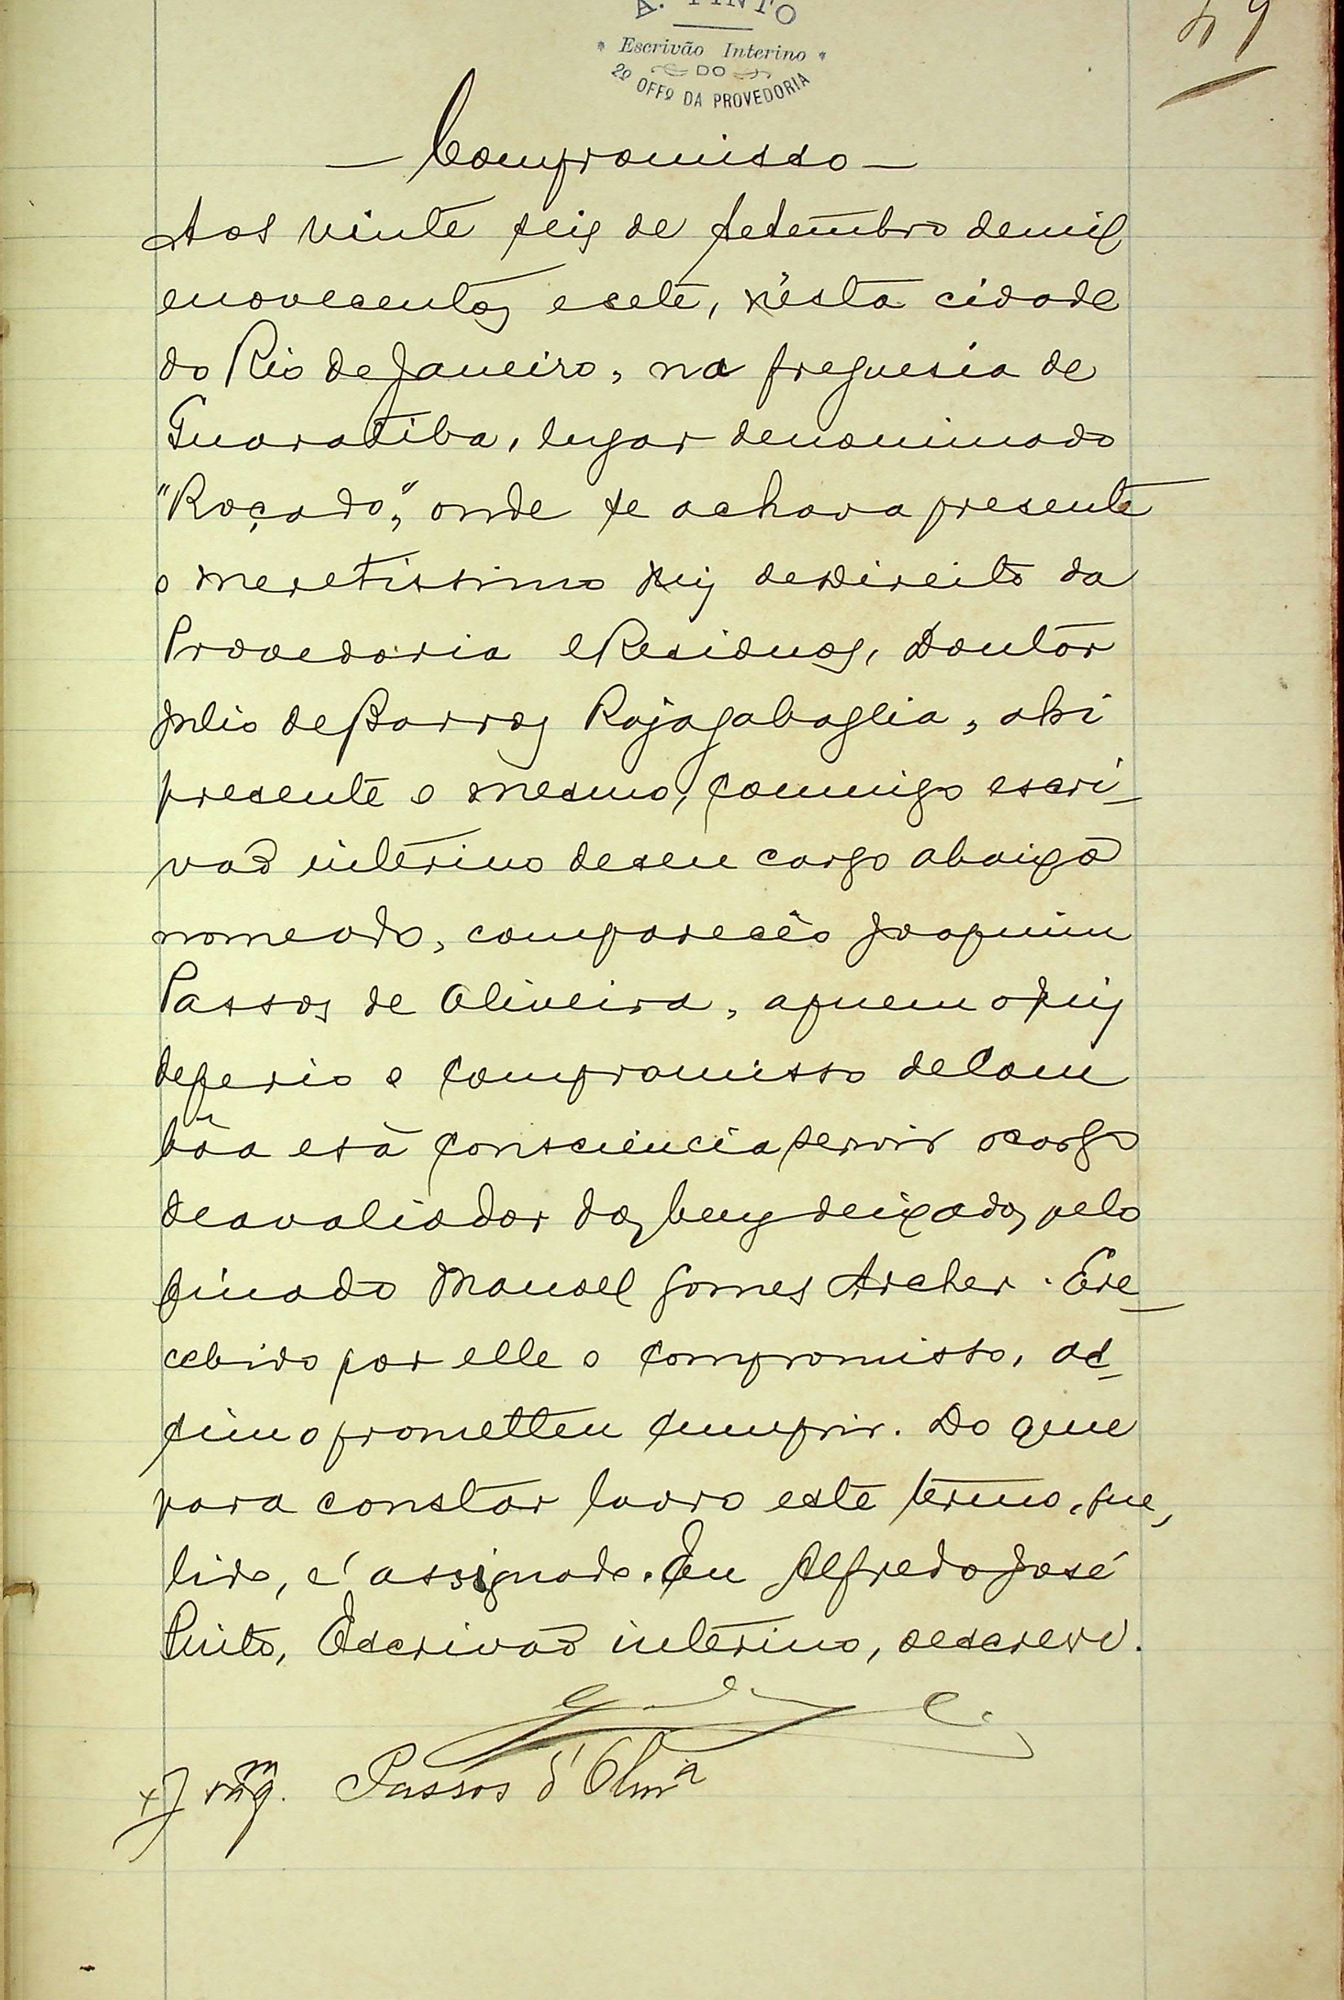 A. PINTO
Escrivão Interino
DO
2º OFFº DA PROVEDORIA
49
— Compromisso —
Aos vinte seis de setembro demil
enovecentos esete, n'esta cidade
do Rio de Janeiro, na freguesia de
Guaratiba, lugar denominado
"Roçado", onde se achava presente
o meretissimo Juiz deDireito da
Provedoria eResiduos, Doutor
Julio deBarros Rajagabaglia, ahi
presente o mesmo, commigo escri-
vaõ interino deseu cargo abaixo
nomeado, compareceo Joaquim
Passos de Oliveira, aquem oJuiz
deferio o compromisso deCom
bôa esã consciencia servir ocargo
deavaliador dos bens deixados pelo
finado Manoel Gomes Archer. Ere-
cebido por elle o compromisso, as-
simo prometteu cumprir. Do que
para constar lavro este termo, que,
lido, é assignado. Eu Alfredo José
Pinto, Escrivaõ interino, oescrevi.
Joaqm. Passos d'Olivrª